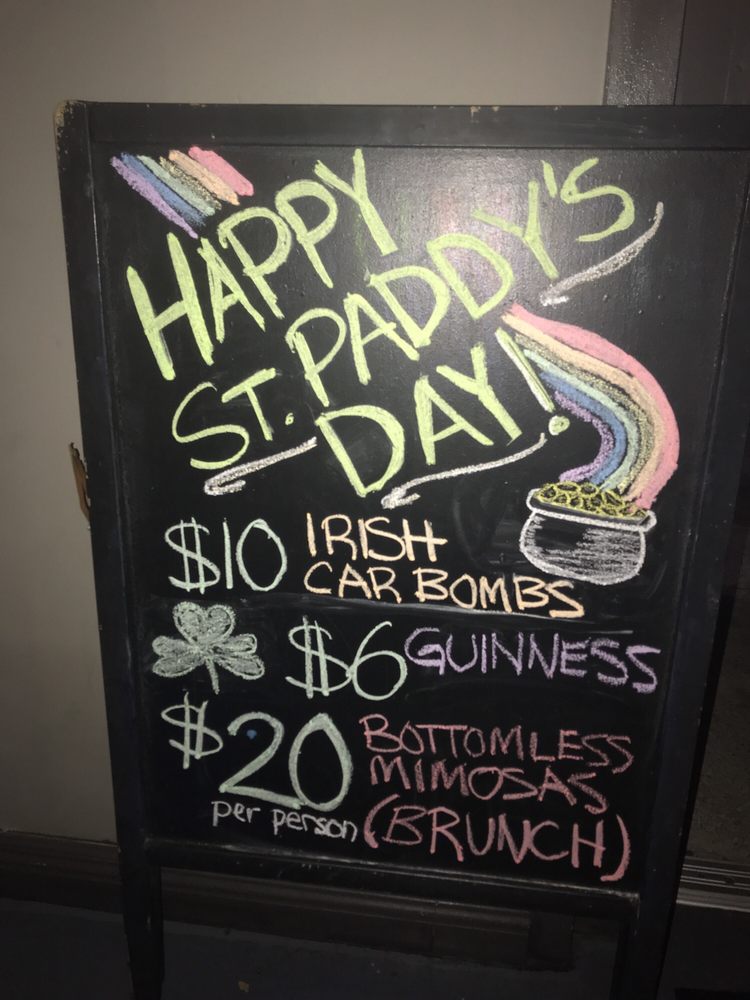 HAPPY
ST. PADDY'S
DAY!
$10 IRISH
CAR BOMBS
$6 GUINNESS
$20 BOTTOMLESS
MIMOSAS
per person (BRUNCH)